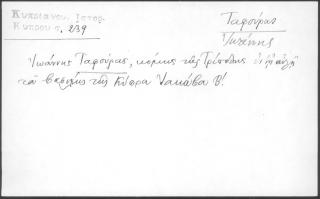 Κυπριανου, Ιστορ.
Κύπρου σ. 239
Ταφούρας
Ἰωάννης
Ἰωάννης Ταφούρας, κόμης τῆς Τριπόλης ἐν τῇ αὐλῇ
τοῦ βασιλέως τῆς Κύπρου Ἰακώβου Β!